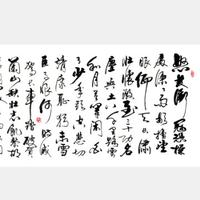 怒髮衝冠憑欄
處瀟瀟雨歇抬望
眼仰天長嘯
壯懷激烈三十功名
塵與土八千里路雲
和月莫等閒白
了少年頭空悲切
靖康恥猶未雪
臣子恨何時滅
駕長車踏破賀
蘭山缺壯志飢餐